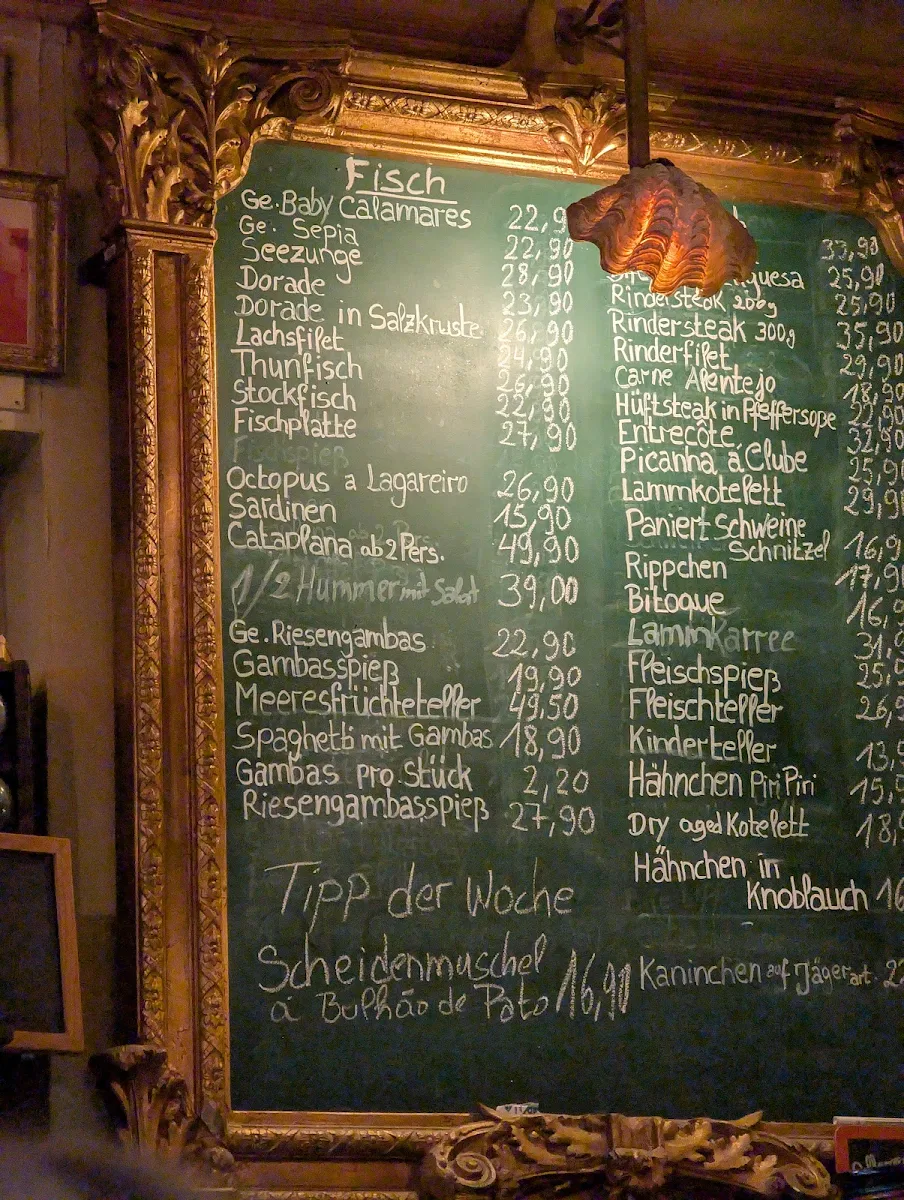 Fisch
Ge. Baby Calamares 22,9
Ge. Sepia 22,90
Seezunge 28,90
Dorade 23,90
Dorade in Salzkruste 26,90
Lachsfilet 24,90
Thunfisch 26,90
Stockfisch 22,90
Fischplatte 27,90
Fischspieß
Octopus a Lagareiro 26,90
Sardinen 15,90
Cataplana ab 2 Pers. 49,90
1/2 Hummer mit Salat 39,00
Ge. Riesengambas 22,90
Gambasspieß 19,90
Meeresfrüchteteller 49,50
Spaghetti mit Gambas 18,90
Gambas pro Stück 2,20
Riesengambasspieß 27,90
Tipp der Woche
Scheidenmuschel
á Bulhão de Pato 16,90
h
33,90
uesa 25,90
Rindersteak 200g 25,90
Rindersteak 300g 35,90
Rinderfilet 29,90
Carne Alentejo 18,90
Hüftsteak in Pfeffersoße 22,90
Entrecôte 32,90
Picanha á Clube 25,9
Lammkotelett 29,9
Paniert Schweine
Schnitzel 16,9
Rippchen 17,9
Bitoque 16,
Lammkarree 31,
Fleischspieß 25,
Fleischteller 26,
Kinderteller 13,
Hähnchen Piri Piri 15,
Dry aged Kotelett 18,
Hähnchen in
Knoblauch 16
Kaninchen auf Jägerart. 22